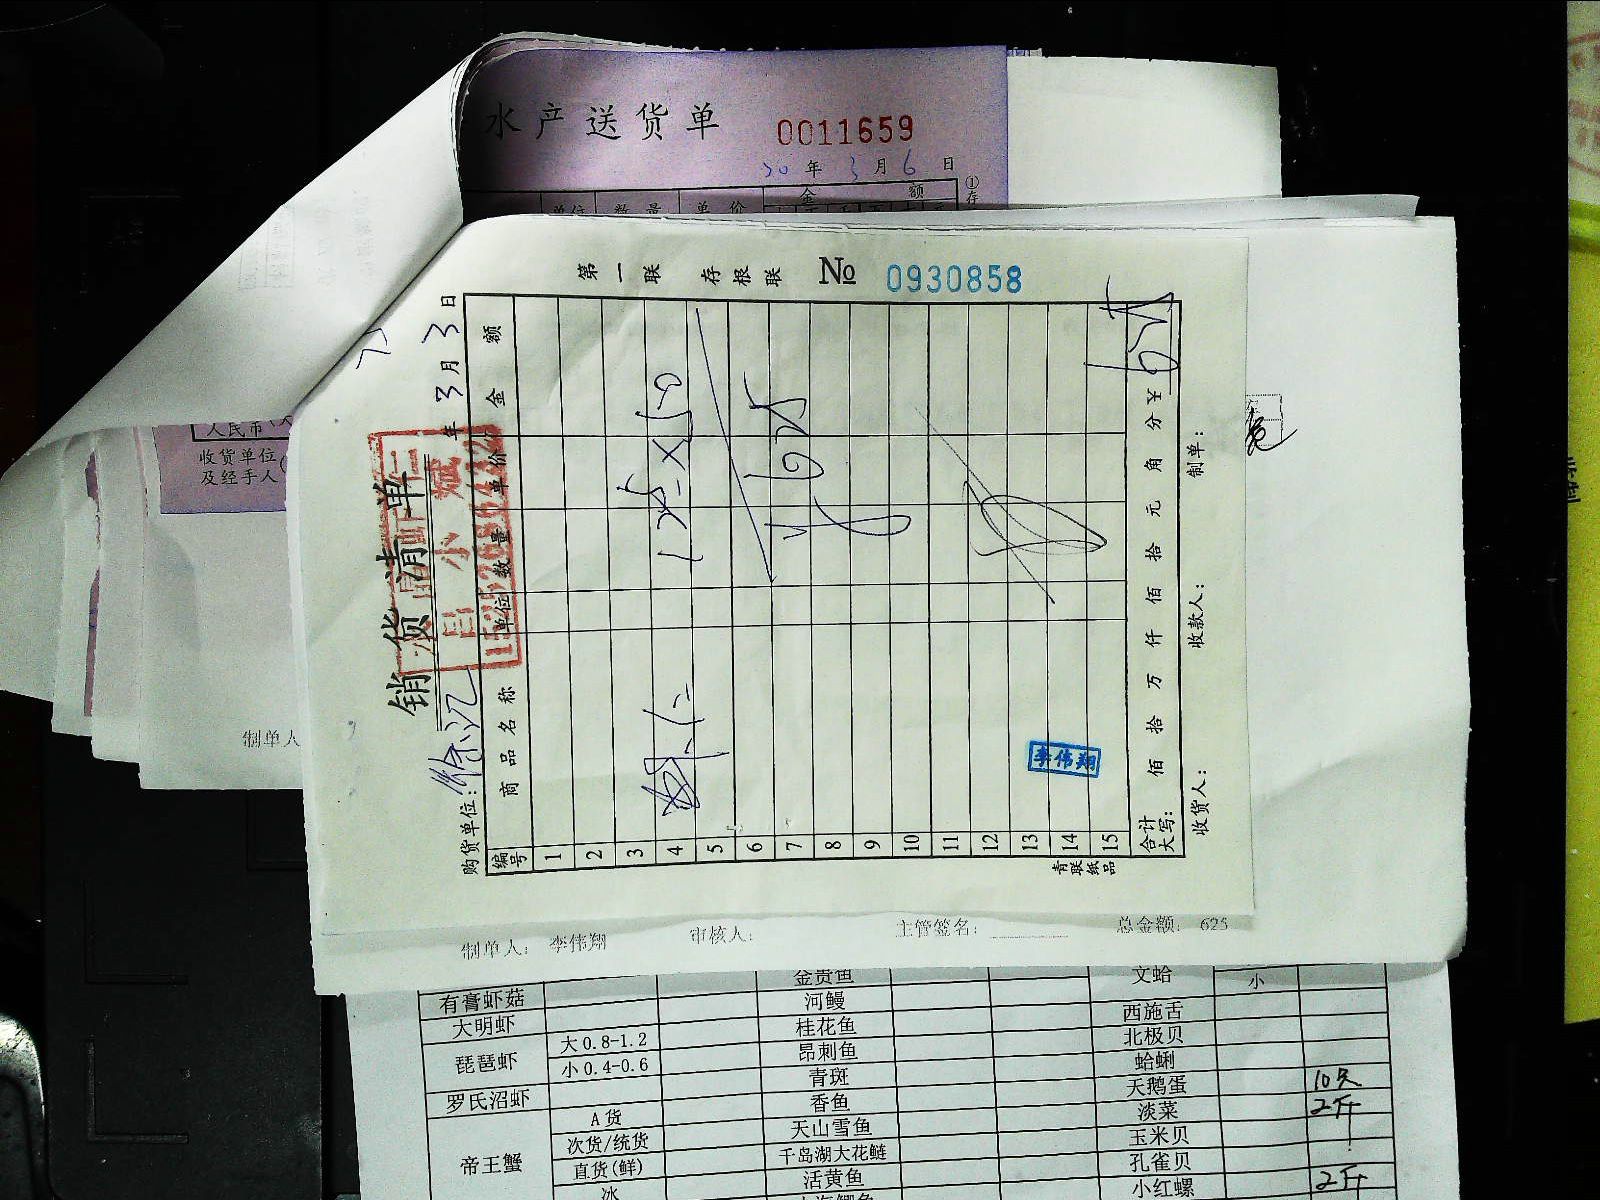 水产送货单 0011659
20年3月6日
单位 数量 单价 金额
①存
人民币
收货单位
及经手人
制单人
第一联 存根联 No 0930858
销货清单
年3月3日
购货单位：徐汇
编号 商品名称 单位 数量 单价 金额
1
2
3
4 虾仁 12.5×50
5
6
7 ¥625
8
9
10
11
12
13
14
15
李伟翔
合计大写： 佰 拾 万 仟 佰 拾 元 角 分 ¥ 625
收货人： 收款人： 制单：
青联纸品
制单人： 李伟翔 审核人： 主管签名： 总金额： 625
金贵鱼 文蛤 小
有膏虾菇 河鳗
大明虾 桂花鱼 西施舌
琵琶虾 大0.8-1.2 昂刺鱼 北极贝
小0.4-0.6 青斑 蛤蜊
罗氏沼虾 香鱼 天鹅蛋 10只
帝王蟹 A货 天山雪鱼 淡菜 2斤
次货/统货 千岛湖大花鲢 玉米贝
直货(鲜) 活黄鱼 孔雀贝
冰 小红螺 2斤